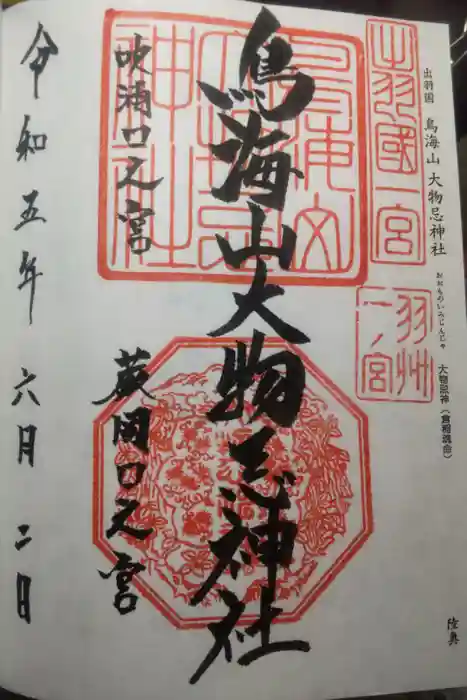 出羽国 鳥海山 大物忌神社
おおものいみじんじゃ
大物忌神（倉稲魂命）
陸奥
出羽國一宮
羽州一ノ宮
鳥海山大物忌神社
吹浦口之宮
蕨岡口之宮
令和五年 六月 二日